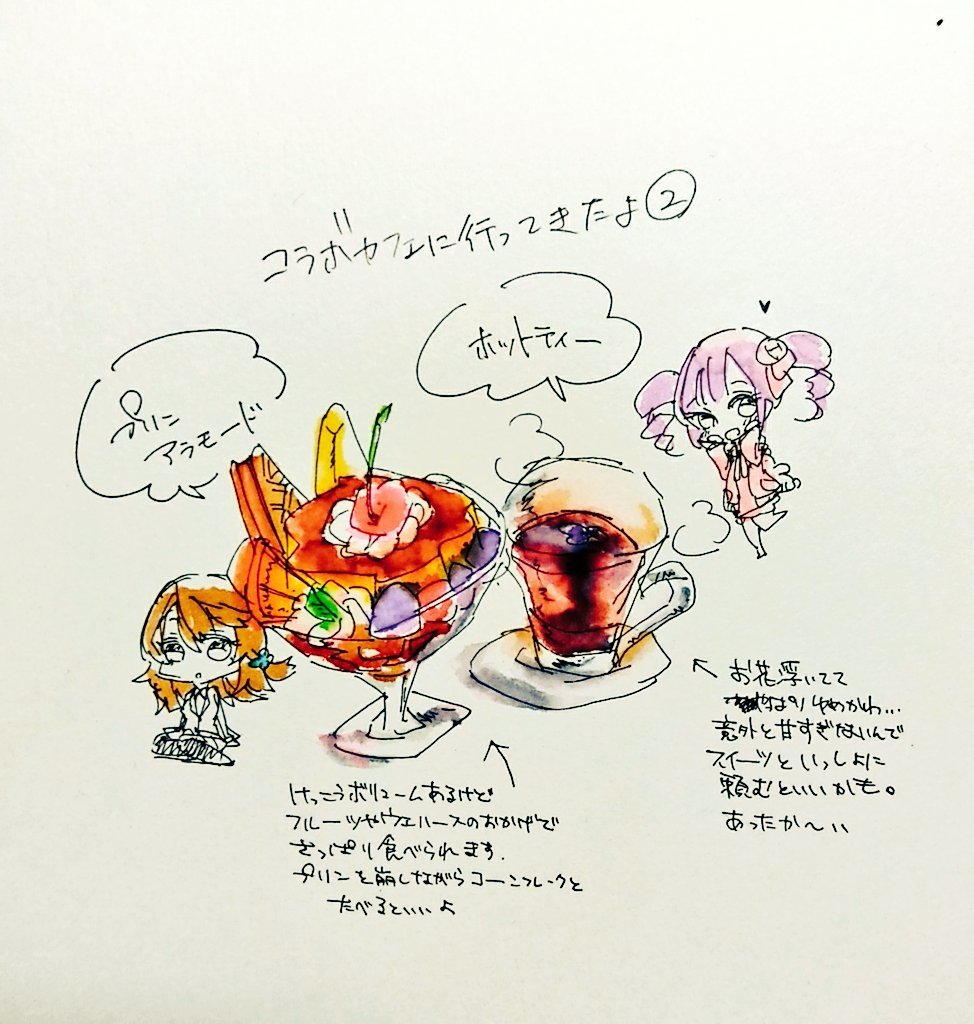 コラボカフェに行ってきたよ②
ホットティー
ぷりん
アラモード
お花浮いてて
やっぱりゆめかわ…
意外と甘すぎないんで
スイーツといっしょに
頼むといいかも。
あったか〜い
けっこうボリュームあるけど
フルーツやウエハースのおかげで
さっぱり食べられます.
プリンを崩しながらコーンフレークと
たべるといいよ